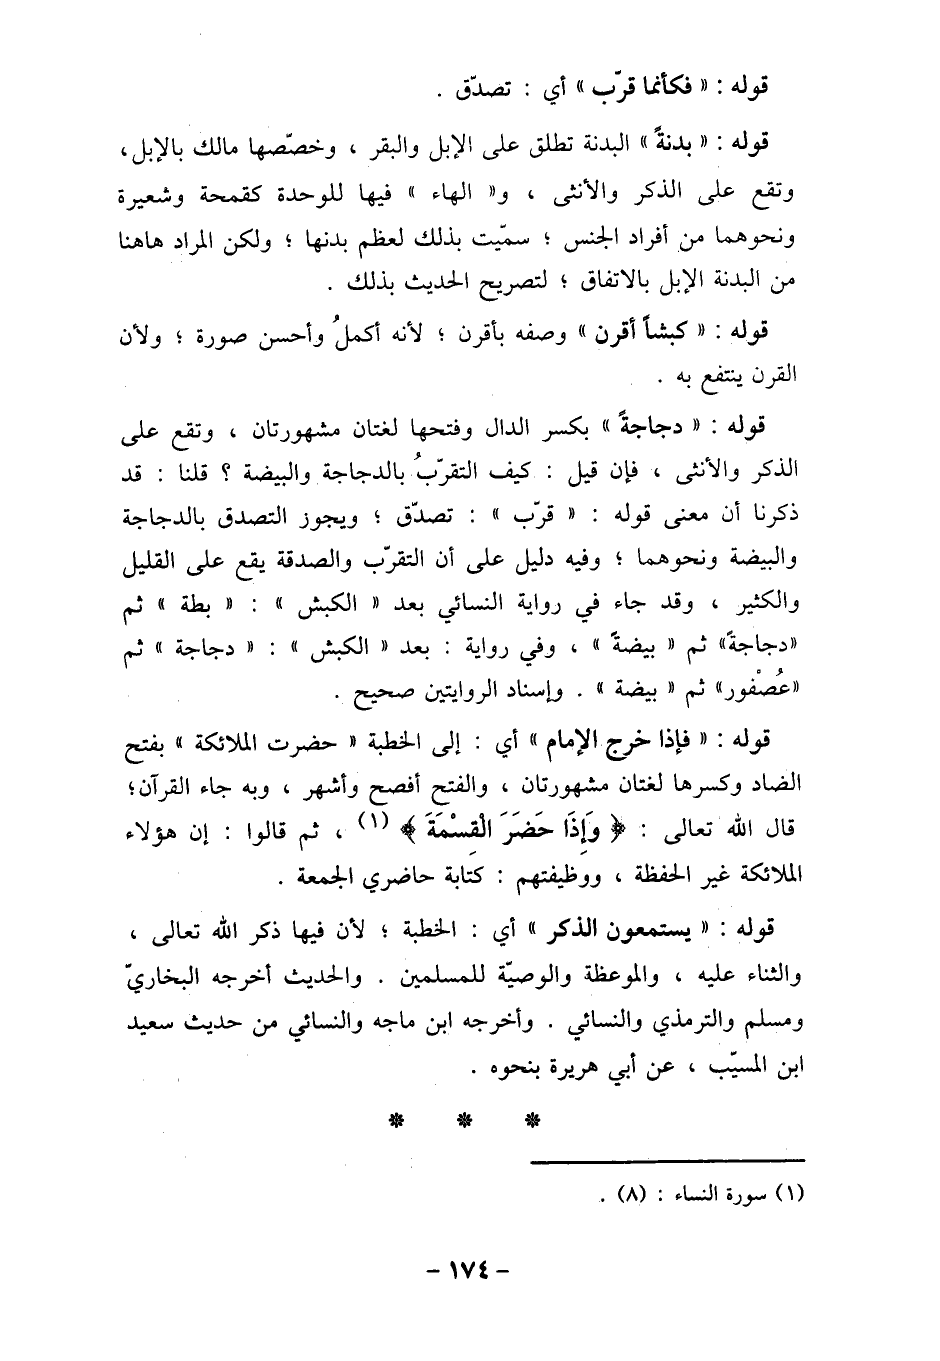 قوله : « فكأنما قرّب » أي : تصدّق .
قوله : « بدنةً » البدنة تطلق على الإبل والبقر ، وخصّصها مالك بالإبل،
وتقع على الذكر والأنثى ، و« الهاء » فيها للوحدة كقمحة وشعيرة
ونحوهما من أفراد الجنس ؛ سمّيت بذلك لعظم بدنها ؛ ولكن المراد هاهنا
من البدنة الإبل بالاتفاق ؛ لتصريح الحديث بذلك .
قوله : « كبشاً أقرن » وصفه بأقرن ؛ لأنه أكملُ وأحسن صورة ؛ ولأن
القرن ينتفع به .
قوله : « دجاجةً » بكسر الدال وفتحها لغتان مشهورتان ، وتقع على
الذكر والأنثى ، فإن قيل : كيف التقرّبُ بالدجاجة والبيضة ؟ قلنا : قد
ذكرنا أن معنى قوله : « قرّب » : تصدّق ؛ ويجوز التصدق بالدجاجة
والبيضة ونحوهما ؛ وفيه دليل على أن التقرّب والصدقة يقع على القليل
والكثير ، وقد جاء في رواية النسائي بعد « الكبش » : « بطة » ثم
«دجاجةً» ثم « بيضةً » ، وفي رواية : بعد « الكبش » : « دجاجة » ثم
«عُصْفور» ثم « بيضة » . وإسناد الروايتين صحيح .
قوله : « فإذا خرج الإمام » أي : إلى الخطبة « حضرت الملائكة » بفتح
الضاد وكسرها لغتان مشهورتان ، والفتح أفصح وأشهر ، وبه جاء القرآن؛
قال الله تعالى : ﴿ وَإِذَا حَضَرَ الْقِسْمَةَ ﴾ (١) ، ثم قالوا : إن هؤلاء
الملائكة غير الحفظة ، ووظيفتهم : كتابة حاضري الجمعة .
قوله : « يستمعون الذكر » أي : الخطبة ؛ لأن فيها ذكر الله تعالى ،
والثناء عليه ، والموعظة والوصيّة للمسلمين . والحديث أخرجه البخاريّ
ومسلم والترمذي والنسائي . وأخرجه ابن ماجه والنسائي من حديث سعيد
ابن المسيّب ، عن أبي هريرة بنحوه .
* * *
(١) سورة النساء : (٨) .
- ١٧٤ -